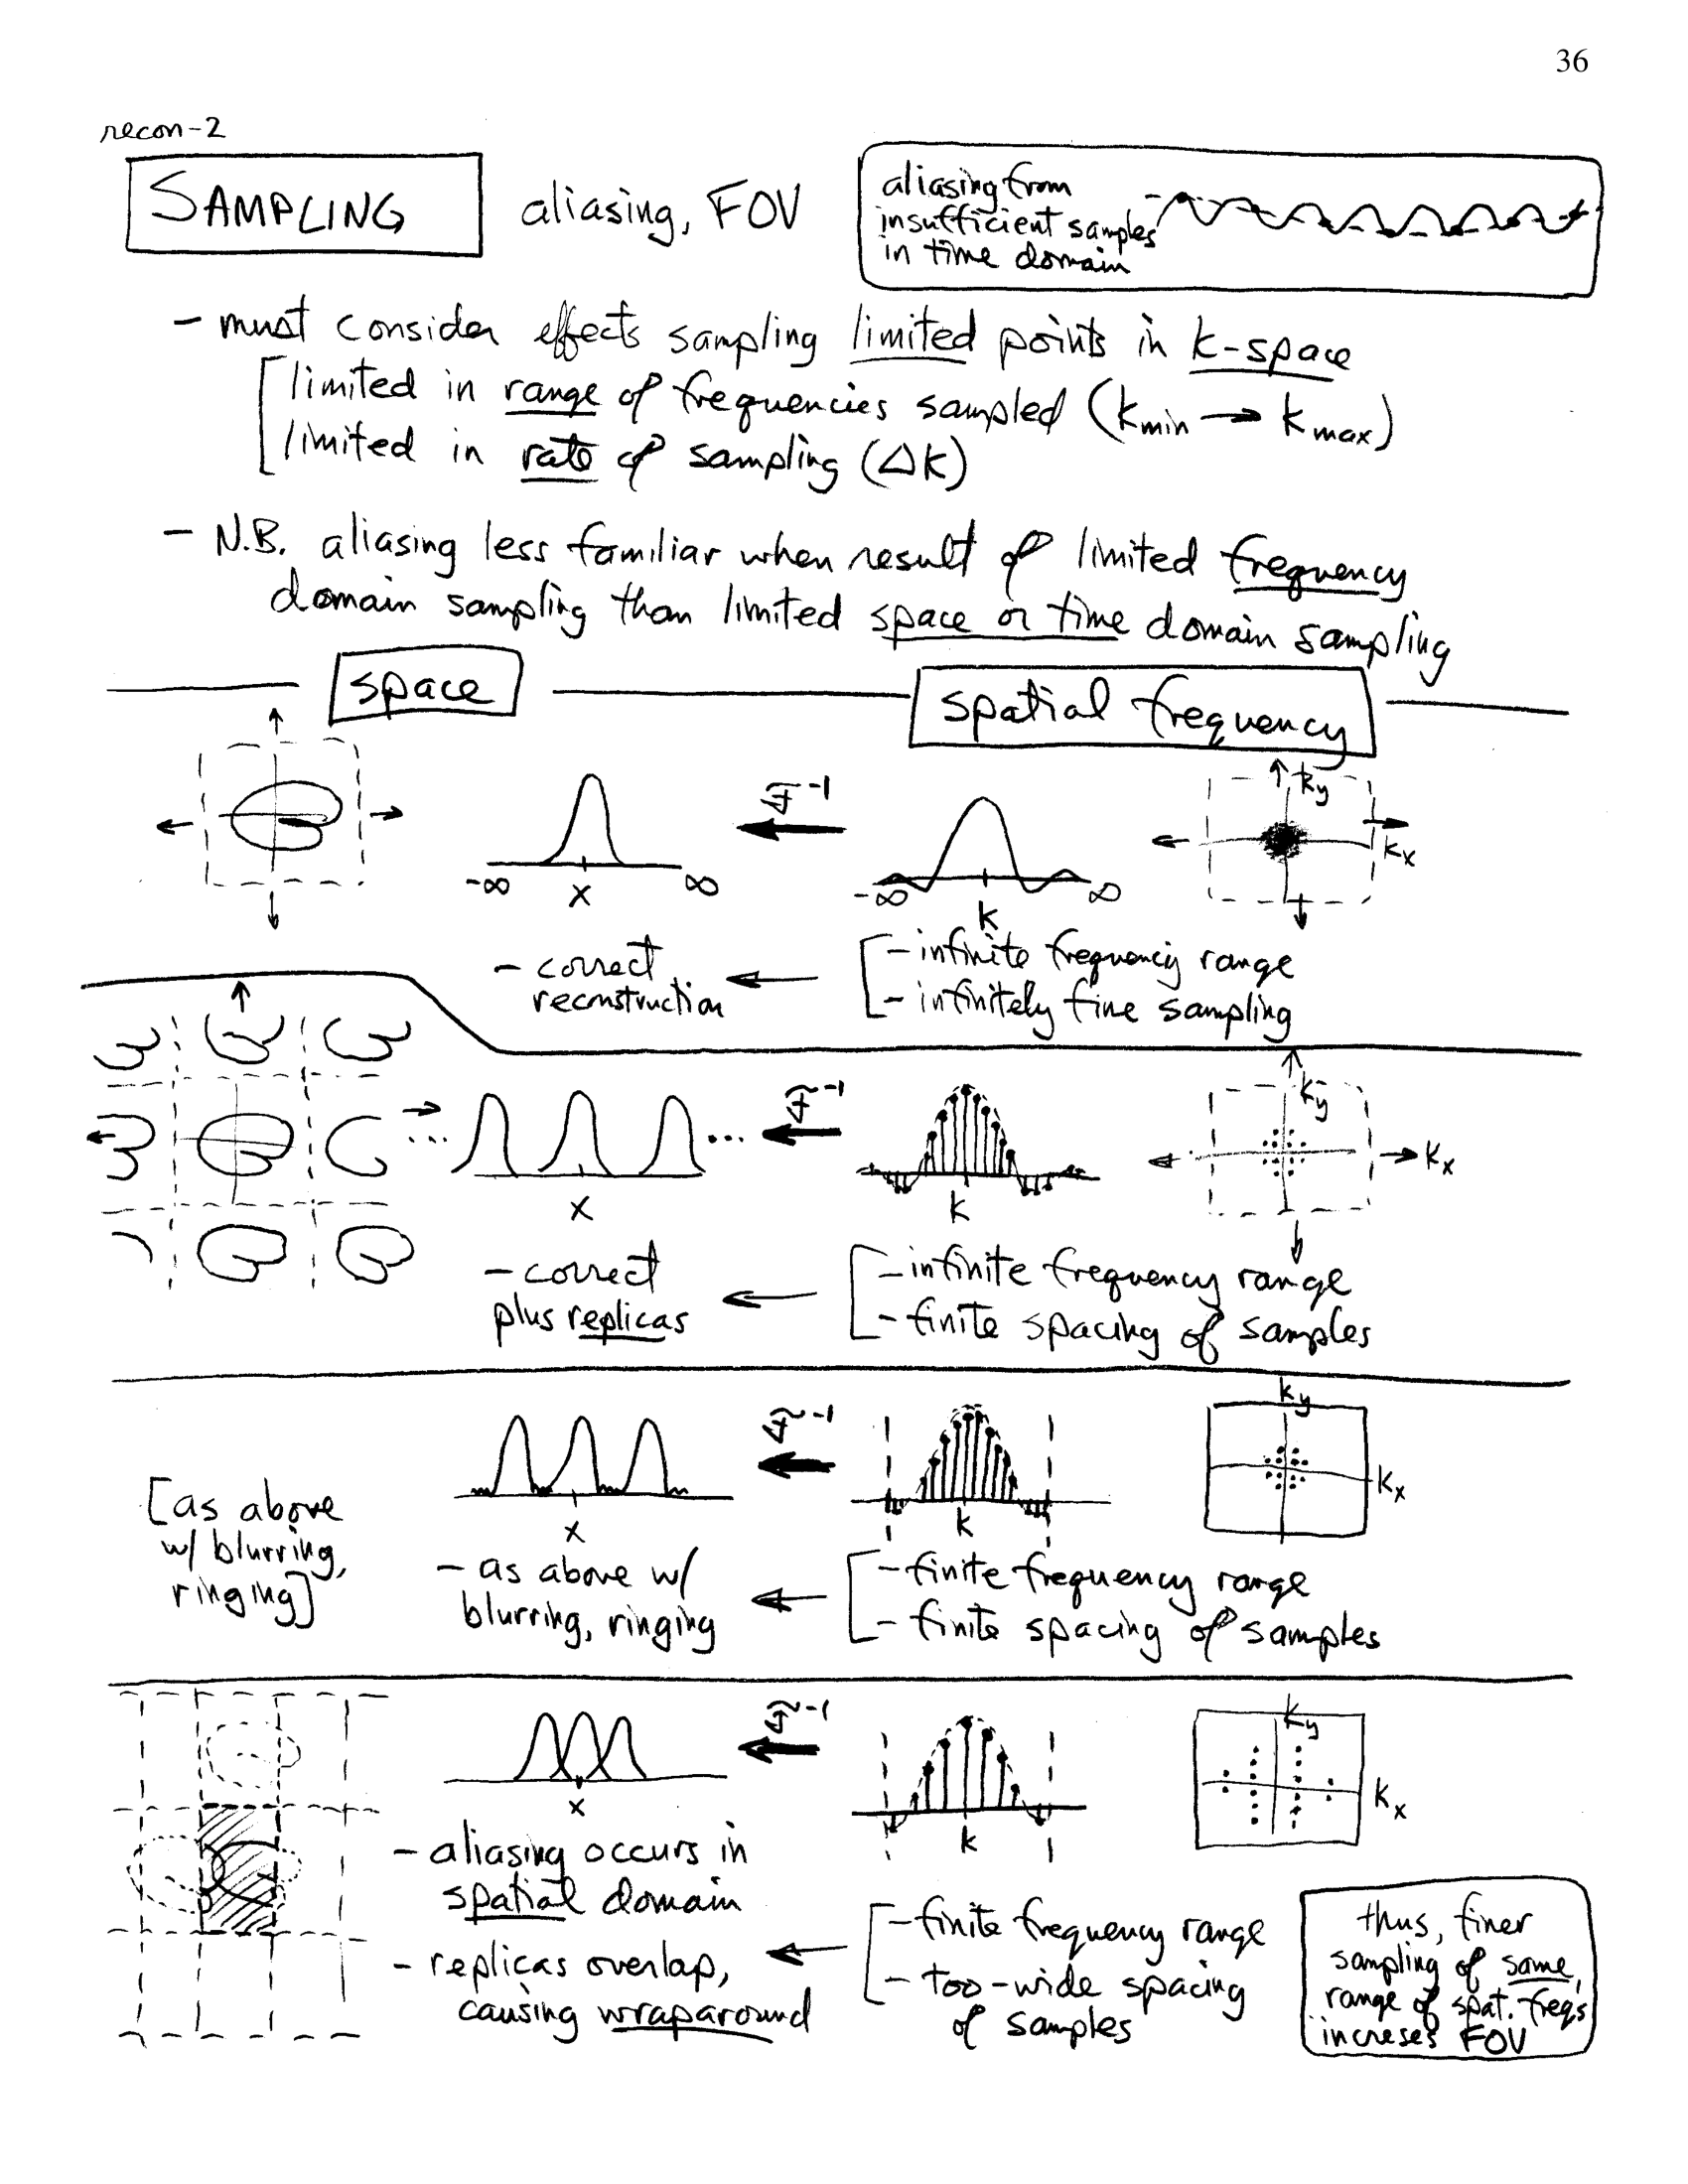 36
recon-2
SAMPLING
aliasing, FOV
aliasing from
insufficient samples
in time domain
- must consider effects sampling limited points in k-space
[limited in range of frequencies sampled (kmin → kmax)
[limited in rate of sampling (Δk)
- N.B. aliasing less familiar when result of limited frequency
domain sampling than limited space or time domain sampling
space
spatial frequency
-∞ x ∞
F -1
-∞ k ∞
ky
kx
- correct
reconstruction
←
[- infinite frequency range
- infinitely fine sampling
... x ...
F -1
k
ky
kx
- correct
plus replicas
←
[- infinite frequency range
- finite spacing of samples
[as above
w/ blurring,
ringing]
x
F -1
k
ky
kx
- as above w/
blurring, ringing
←
[- finite frequency range
- finite spacing of samples
x
F -1
k
ky
kx
- aliasing occurs in
spatial domain
- replicas overlap,
causing wraparound
←
[- finite frequency range
- too-wide spacing
of samples
thus, finer
sampling of same
range of spat. freq's
increses FOV